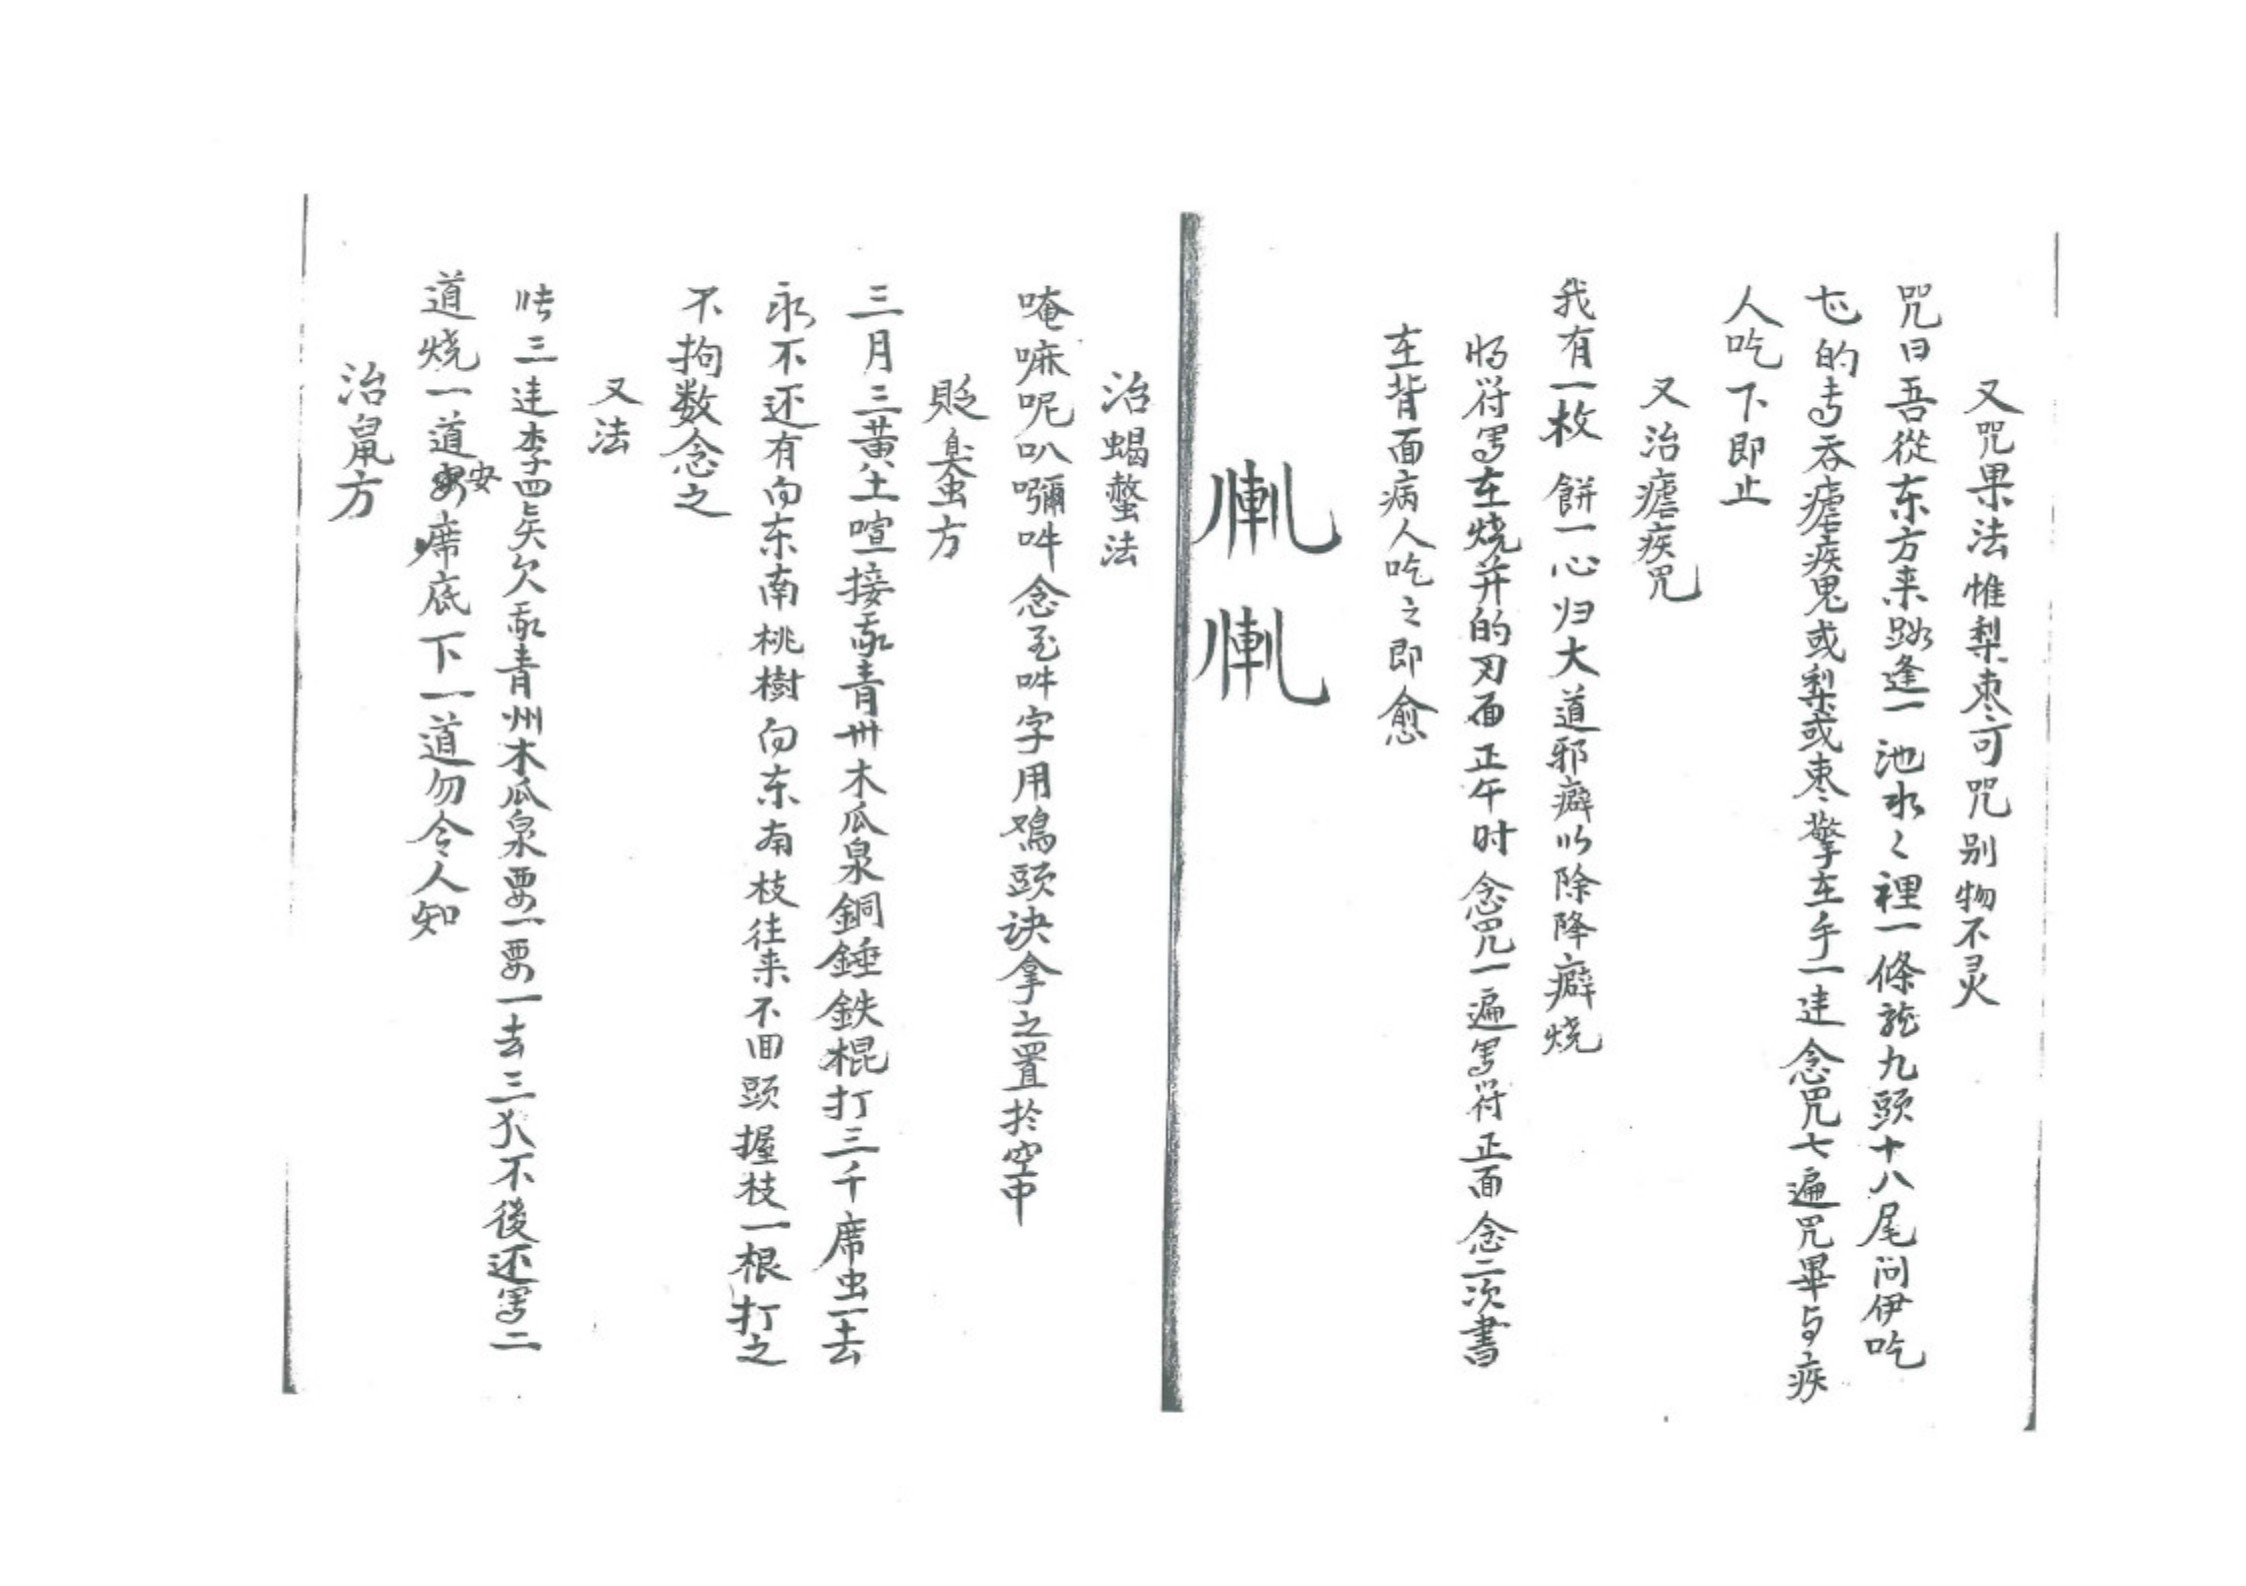 又咒果法惟梨枣可咒别物不灵
咒曰吾從东方来路逢一池水々裡一條龍九頭十八尾问伊吃
的吞瘧疾鬼或梨或枣擎在手一念咒七遍咒畢与疾
人吃下即止
又治瘧疾咒
我有一枚餅一心归大道邪癖以除降癖烧
将符写在烧并的刃面正午时念咒一遍写符正面念二次書
在背面病人吃之即愈
治蝎螫法
唵嘛呢叭嘪吽念至吽字用鸡頭诀拿之置於空中
貶臭虫方
三月三黄土喧接青卅木瓜泉銅錘鉄棍打三千席虫一去
永不还有向东南桃樹向东南枝往来不回頭握枝一根打之
不拘数念之
又法
三李四矣欠青州木瓜泉要一要一去三不後还写二
道烧一道安席底下一道勿令人知
治鼠方